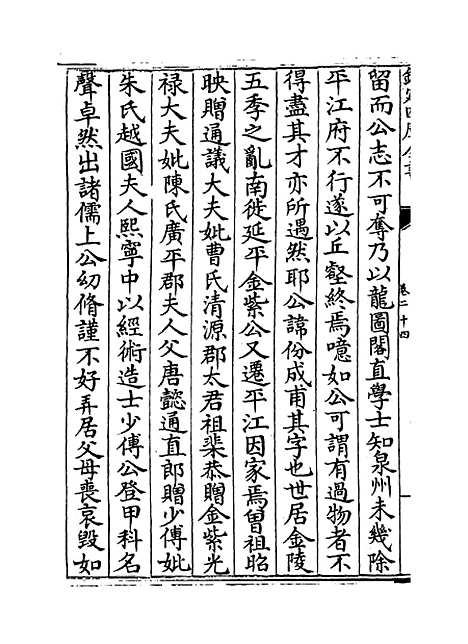 欽定四庫全書
卷二十四
留而公志不可奪乃以龍圖閣直學士知泉州未幾除
平江府不行遂以丘壑終焉噫如公可謂有過物者不
得盡其才亦所遇然耶公諱份成甫其字也世居金陵
五季之亂南徙延平金紫公又遷平江因家焉曽祖昭
映贈通議大夫妣曹氏清源郡太君祖棐恭贈金紫光
禄大夫妣陳氏廣平郡夫人父唐懿通直郎贈少傅妣
朱氏越國夫人熙寧中以經術造士少傅公登甲科名
聲卓然出諸儒上公幼脩謹不好弄居父母喪哀毁如